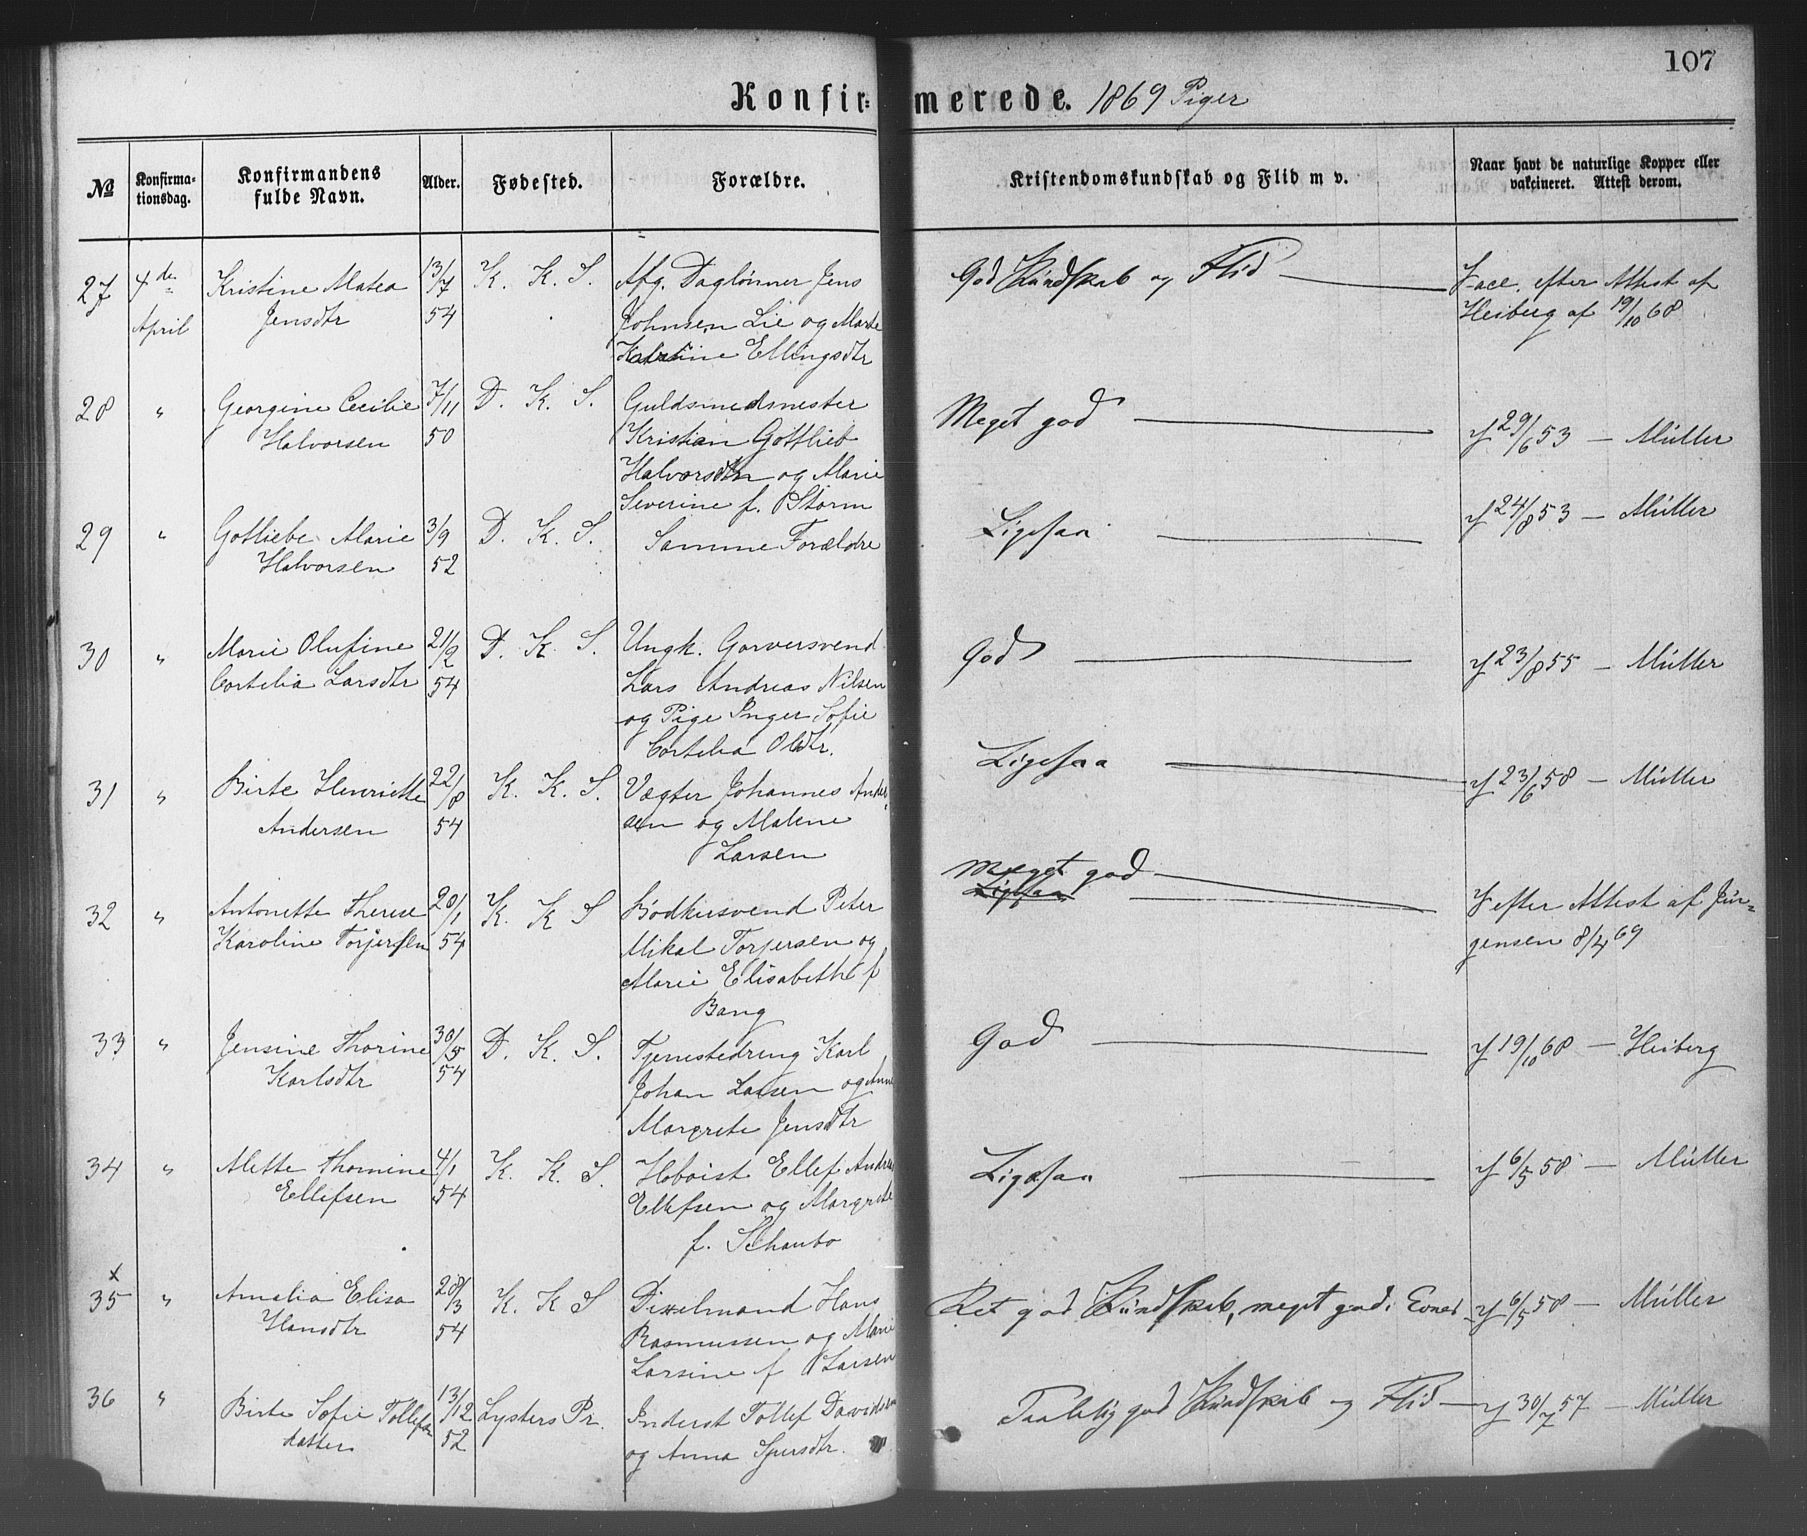 107
Konfirmerede. 1869 Piger
№ Konfirma-tionsdag. Konfirmandens fulde Navn. Alder. Fødested. Forældre. Kristendomskundskab og Flid m v. Naar havt de naturlige Kopper eller vakcineret. Attest derom.
27 4de 13/7 K. K. S. Afg. Daglønner Jens God Kundskab og Flid Vacc. efter Attest af
April Kristine Matea 54 Johnsen Lie og Marte Heiberg af 19/10 68
Jensdtr Ellingsdtr
28 " Georgine Cecilie 7/11 D. K. S. Guldsmedmester Meget god
Halvorsen 50 Kristian Gottlieb V 29/6 53 — Müller
Halvorsen og Marie
Severine f. Storm
29 " Gotliebe Marie 3/9 D. K. S. Samme Forældre Ligesaa V 24/8 53 — Müller
Halvorsen 52
30 " Marie Olufine 21/2 D. K. S. Ungk. Garversvend God V 23/8 55 — Müller
Cortelia Larsdtr 54 Lars Andreas Nilsen
og Pige Inger Sofie
Cortelia Olsdtr.
31 " Birte Henriette 22/8 K. K. S. Vægter Johannes Ander- Ligesaa V 23/6 58 — Müller
Andersen 54 sen og Malene
Larsen
32 " Antonette Therese 20/1 K. K S Bødkersvend Peter Meget god V efter Attest af Jür-
Karoline Torjersen 54 Mikal Torjersen og Ligesaa gensen 8/4 69
Marie Elisabeth f
Bang
33 " Jensine Thorine 30/5 D. K. S. Tjenestedreng Karl God V 19/10 68 — Heiberg
Karlsdtr 54 Johan Larsen og Anne
Margrete Jensdtr
34 " Alette Thomine 4/1 K. K. S. Hoboist Ellef Andreas Ligesaa V 6/5 58 — Müller
Ellefsen 54 Ellefsen og Margrete
f. Schanbo
x
35 " Amalia Elisa 28/3 K. K S Dixelmand Hans Ret god Kundskab, meget gode Evner V 6/5 58 — Müller
Hansdtr 54 Rasmussen og Marie
Larsine f Larsen
36 " Birte Sofie Tollefs 13/12 Lysters Pr. Inderst Tollef Davidsen Taalelig god Kundskab og Flid V 30/7 57 — Müller
datter 52 og Anna Sjursdtr.